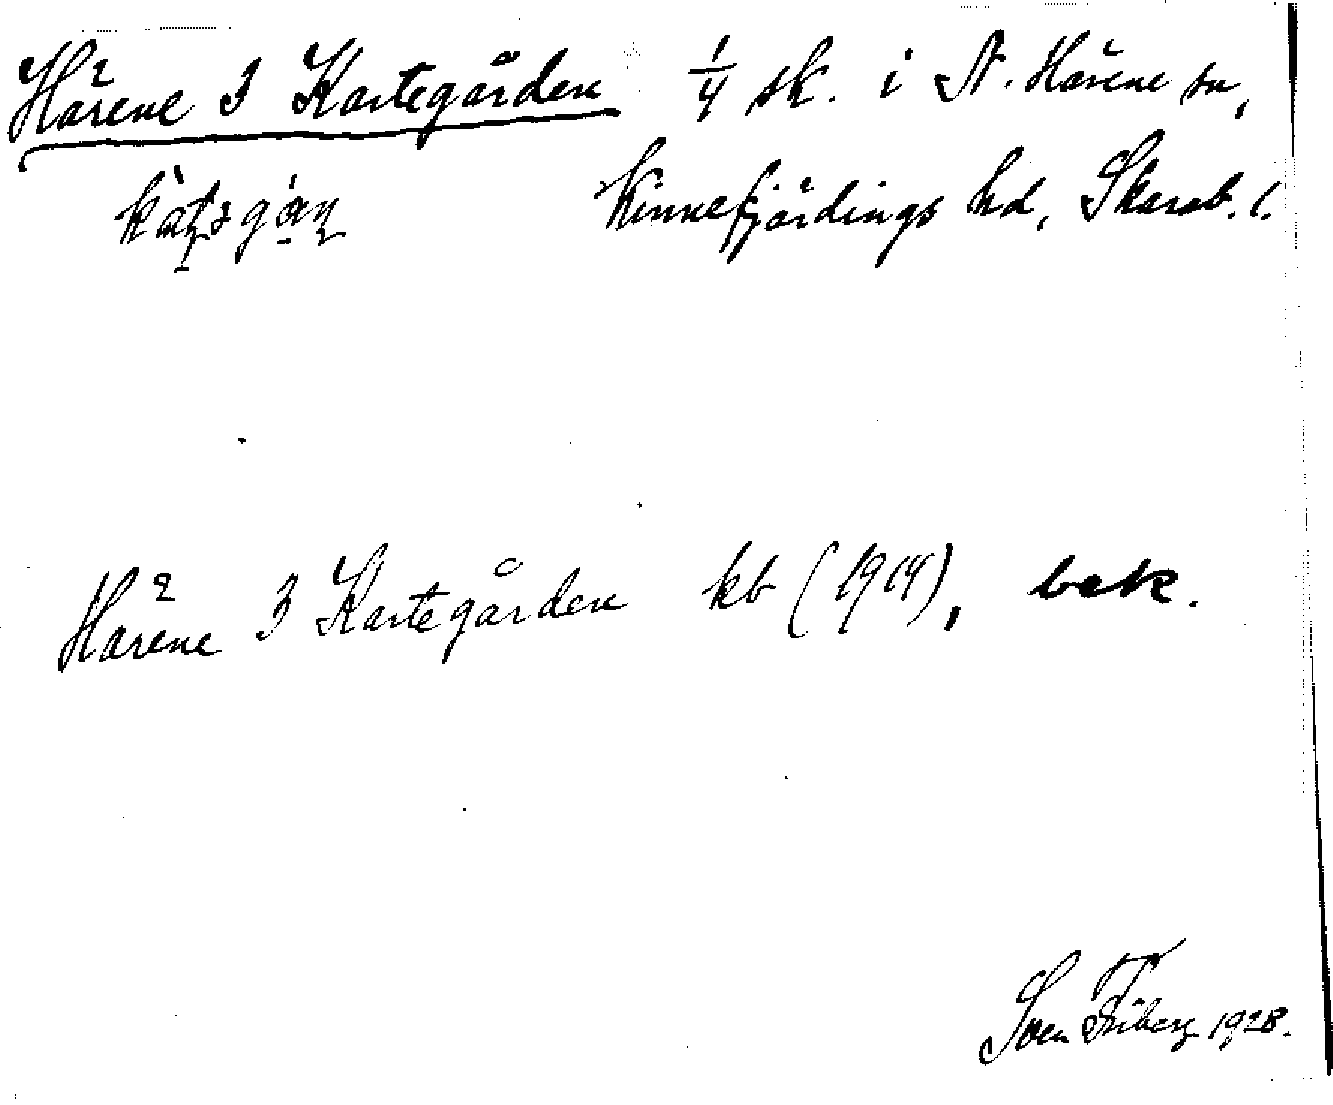 Härene 3 Kartegården 1/4 sk. i N. Härene sn,
Kinnefjärdings hd, Skarab. l.
Härene 3 Kartegården kb (1919), bek.
Sven Friberg 1928.